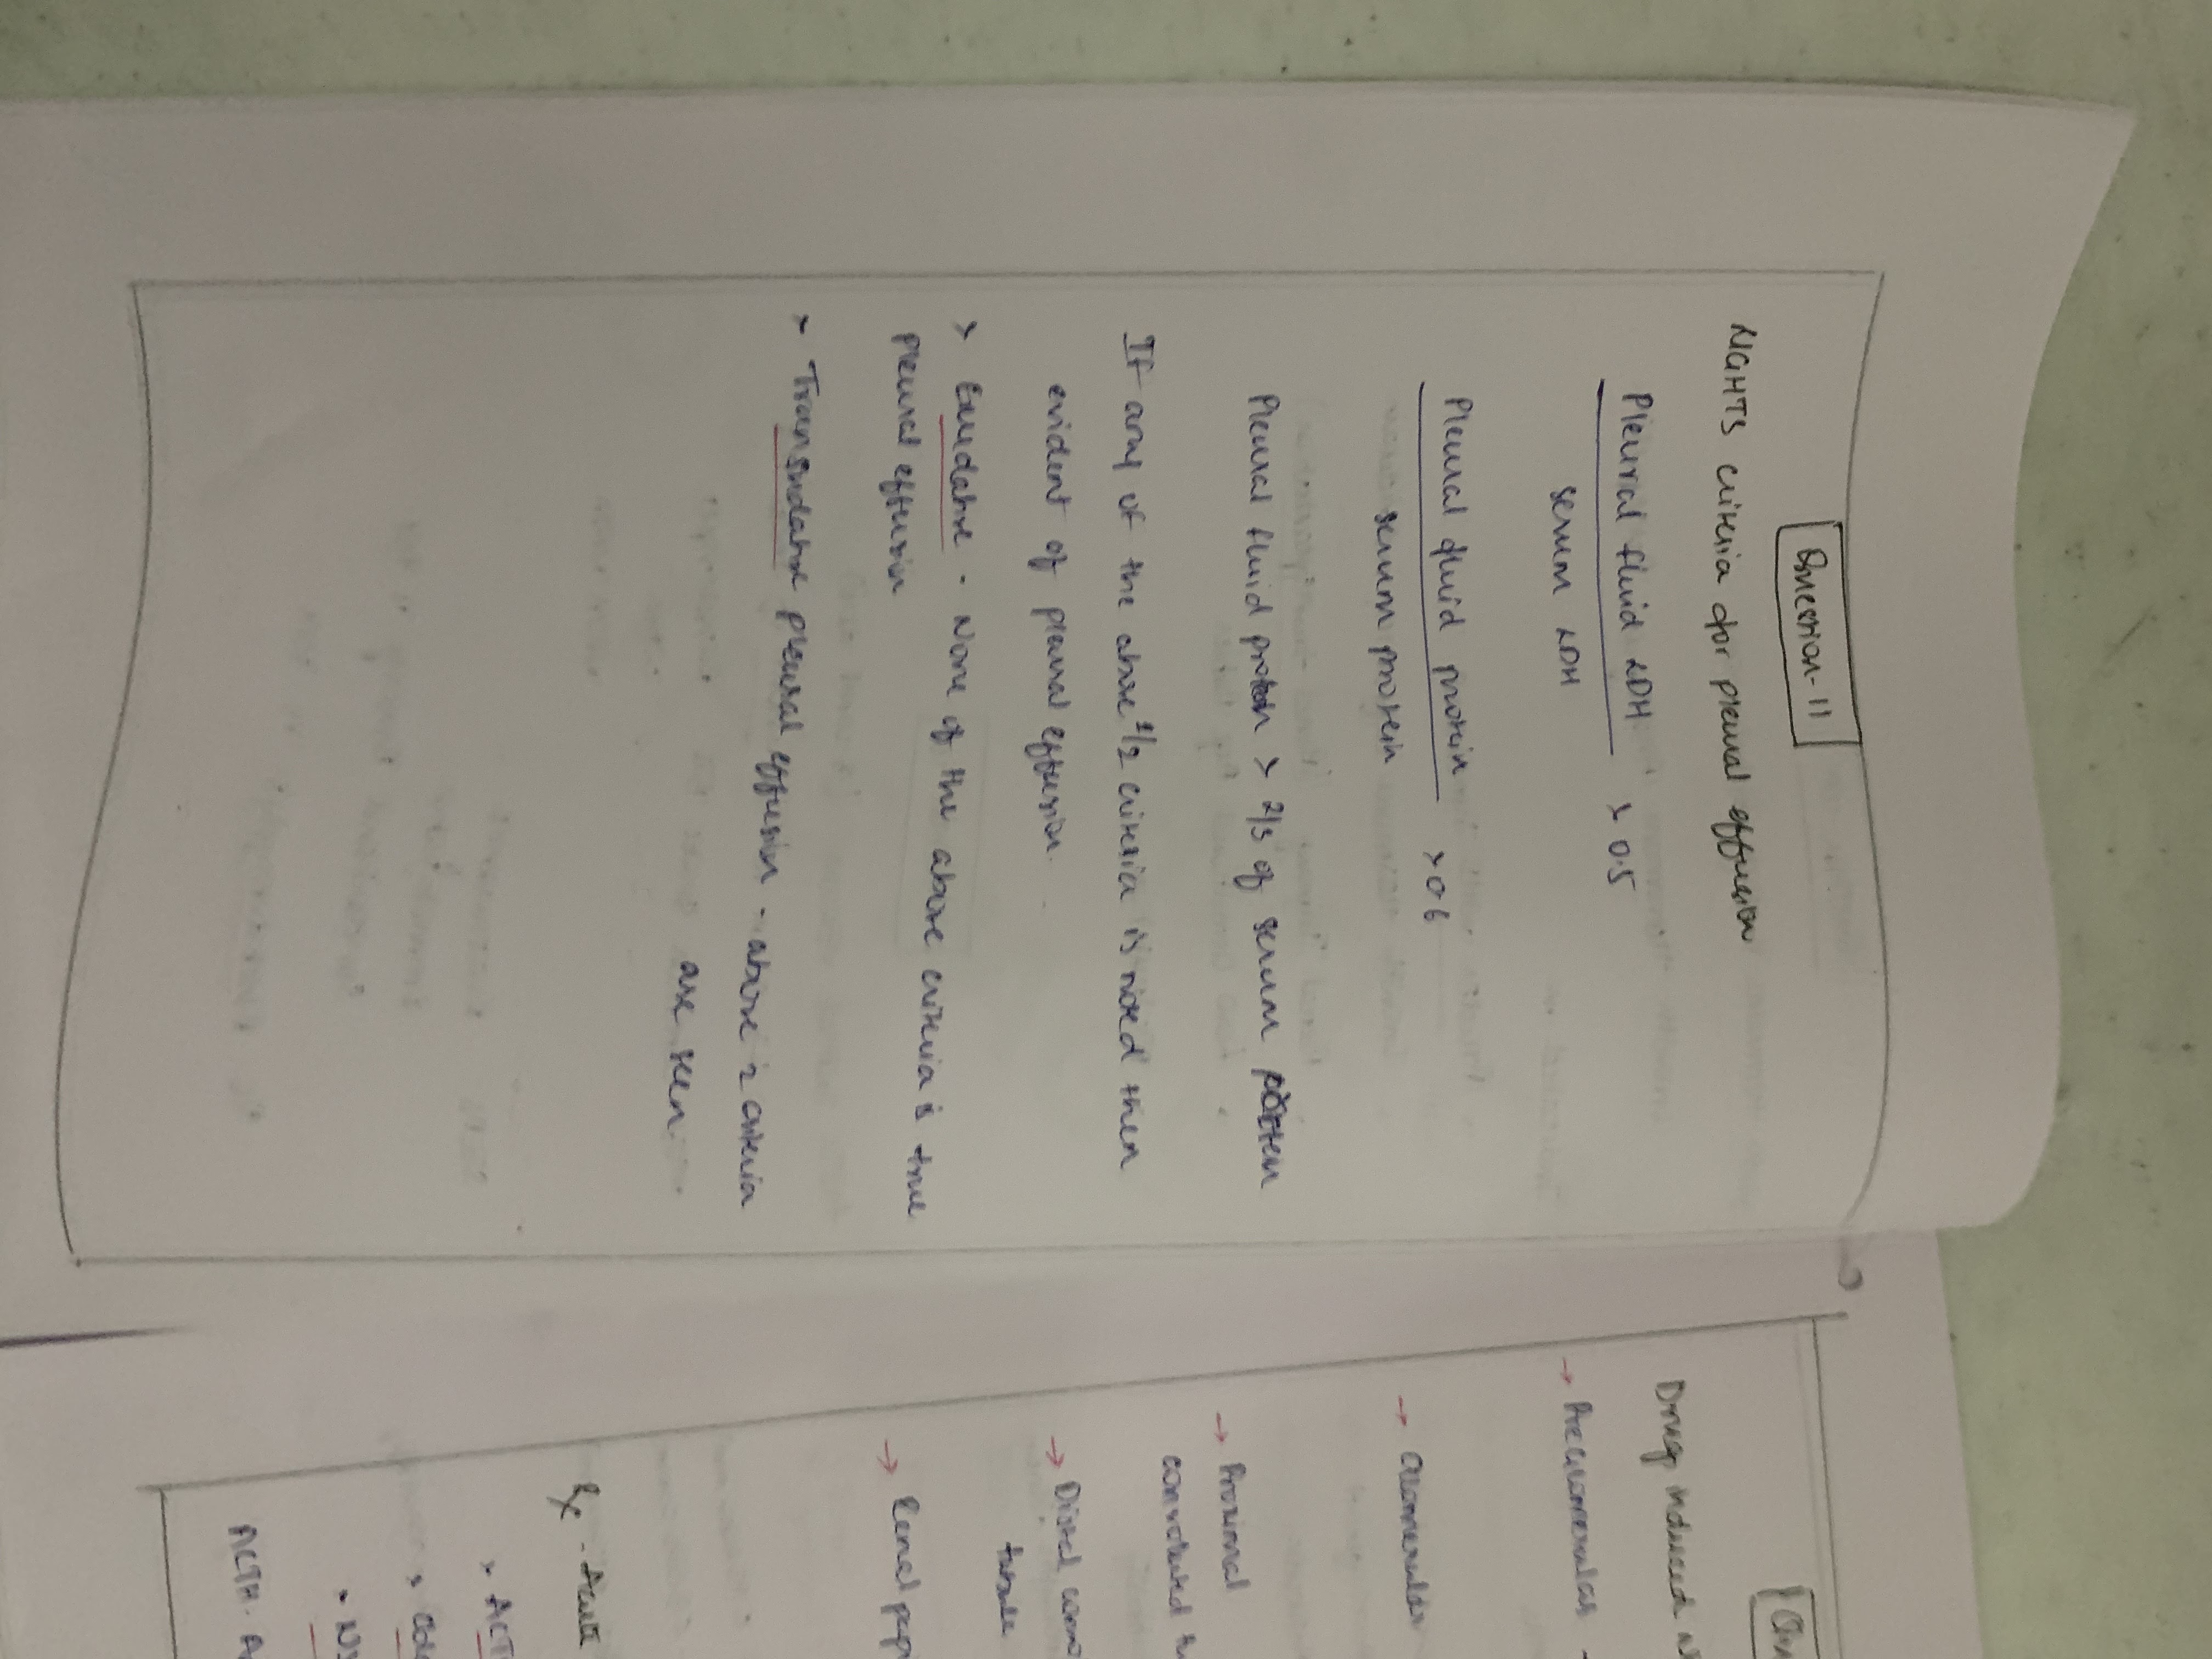 Question-11
LIGHTS criteria for pleural effusion
Pleural fluid LDH > 0.5
serum LDH
Pleural fluid protein > 0.6
serum protein
Pleural fluid protein > 2/3 of serum protein
If any of the above 1/2 criteria is noted then
evident of pleural effusion.
> Exudative - None of the above criteria is true
pleural effusion
> Transudative pleural effusion - above 2 criteria
are seen
Drug induced
→ Preglomerular -
→ Glomerular
→ Proximal
convoluted
→ Distal conv
tubule
→ Renal pap
Rx - Acute
> ACT
ACTH - A